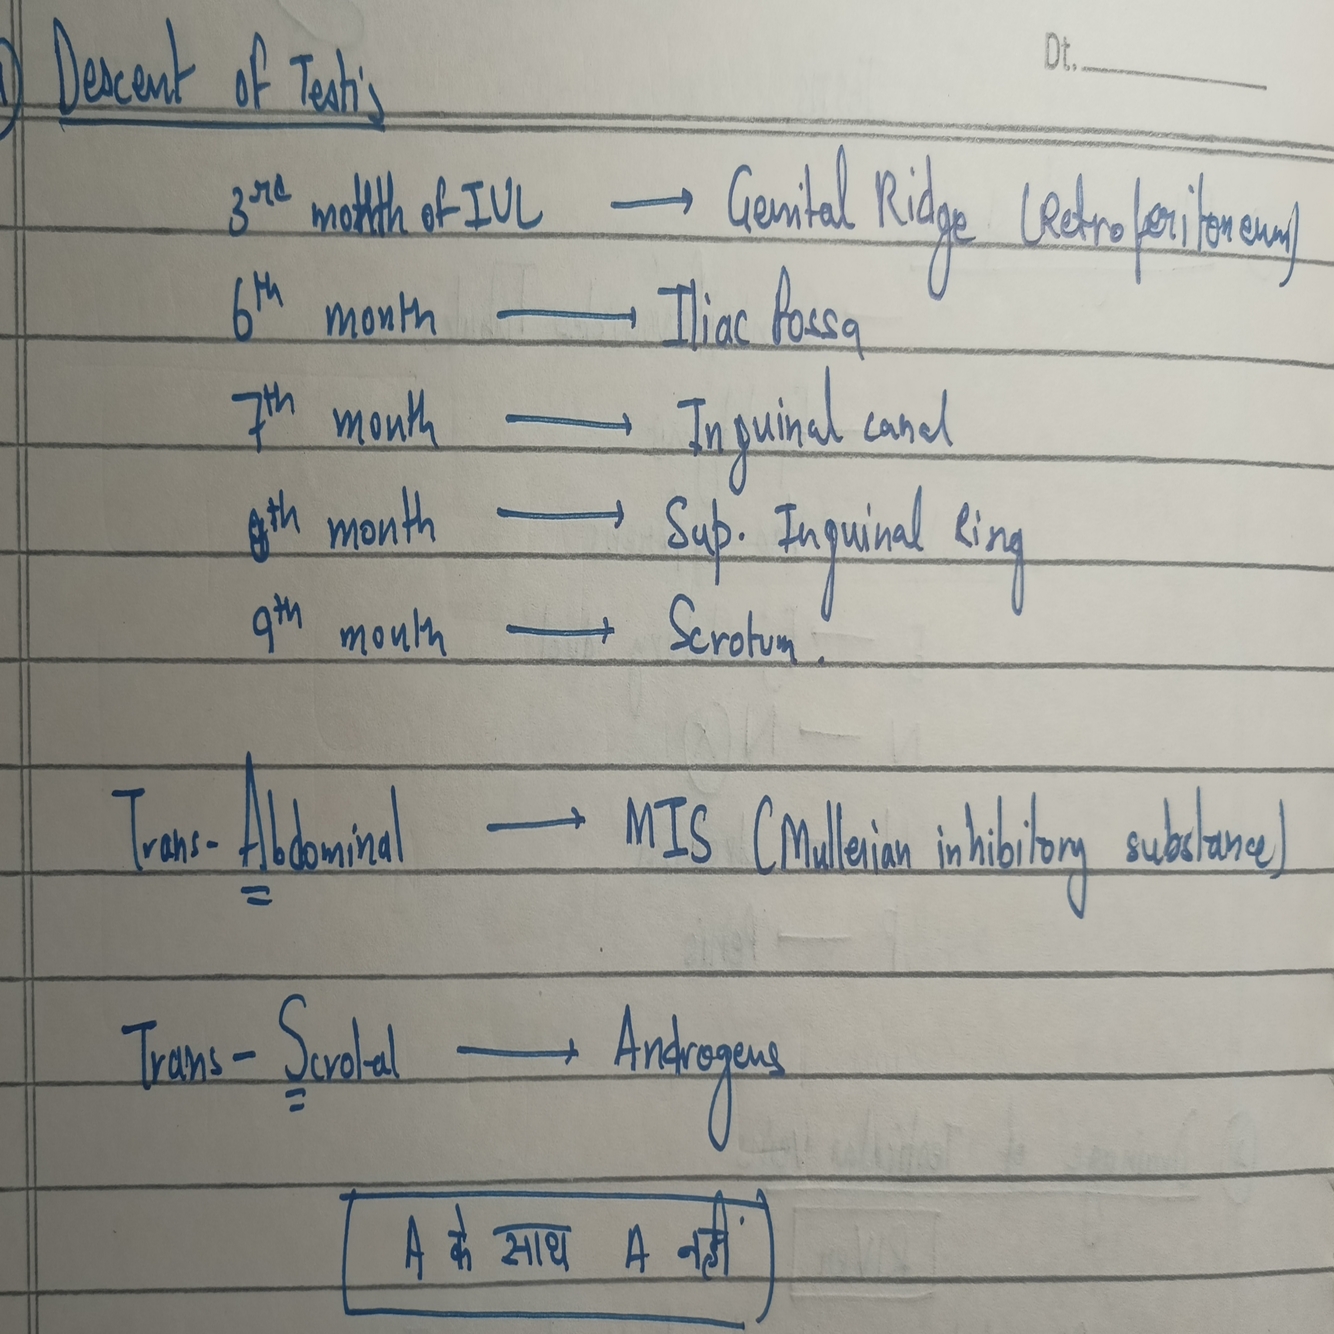 Descent of Testis
Dt.
3rd month of IUL → Genital Ridge (Retroperitoneum)
6th month → Iliac fossa
7th month → Inguinal canal
8th month → Sup. Inguinal Ring
9th month → Scrotum.
Trans-Abdominal → MIS (Mullerian inhibitory substance)
Trans-Scrotal → Androgens
A के साथ A नहीं